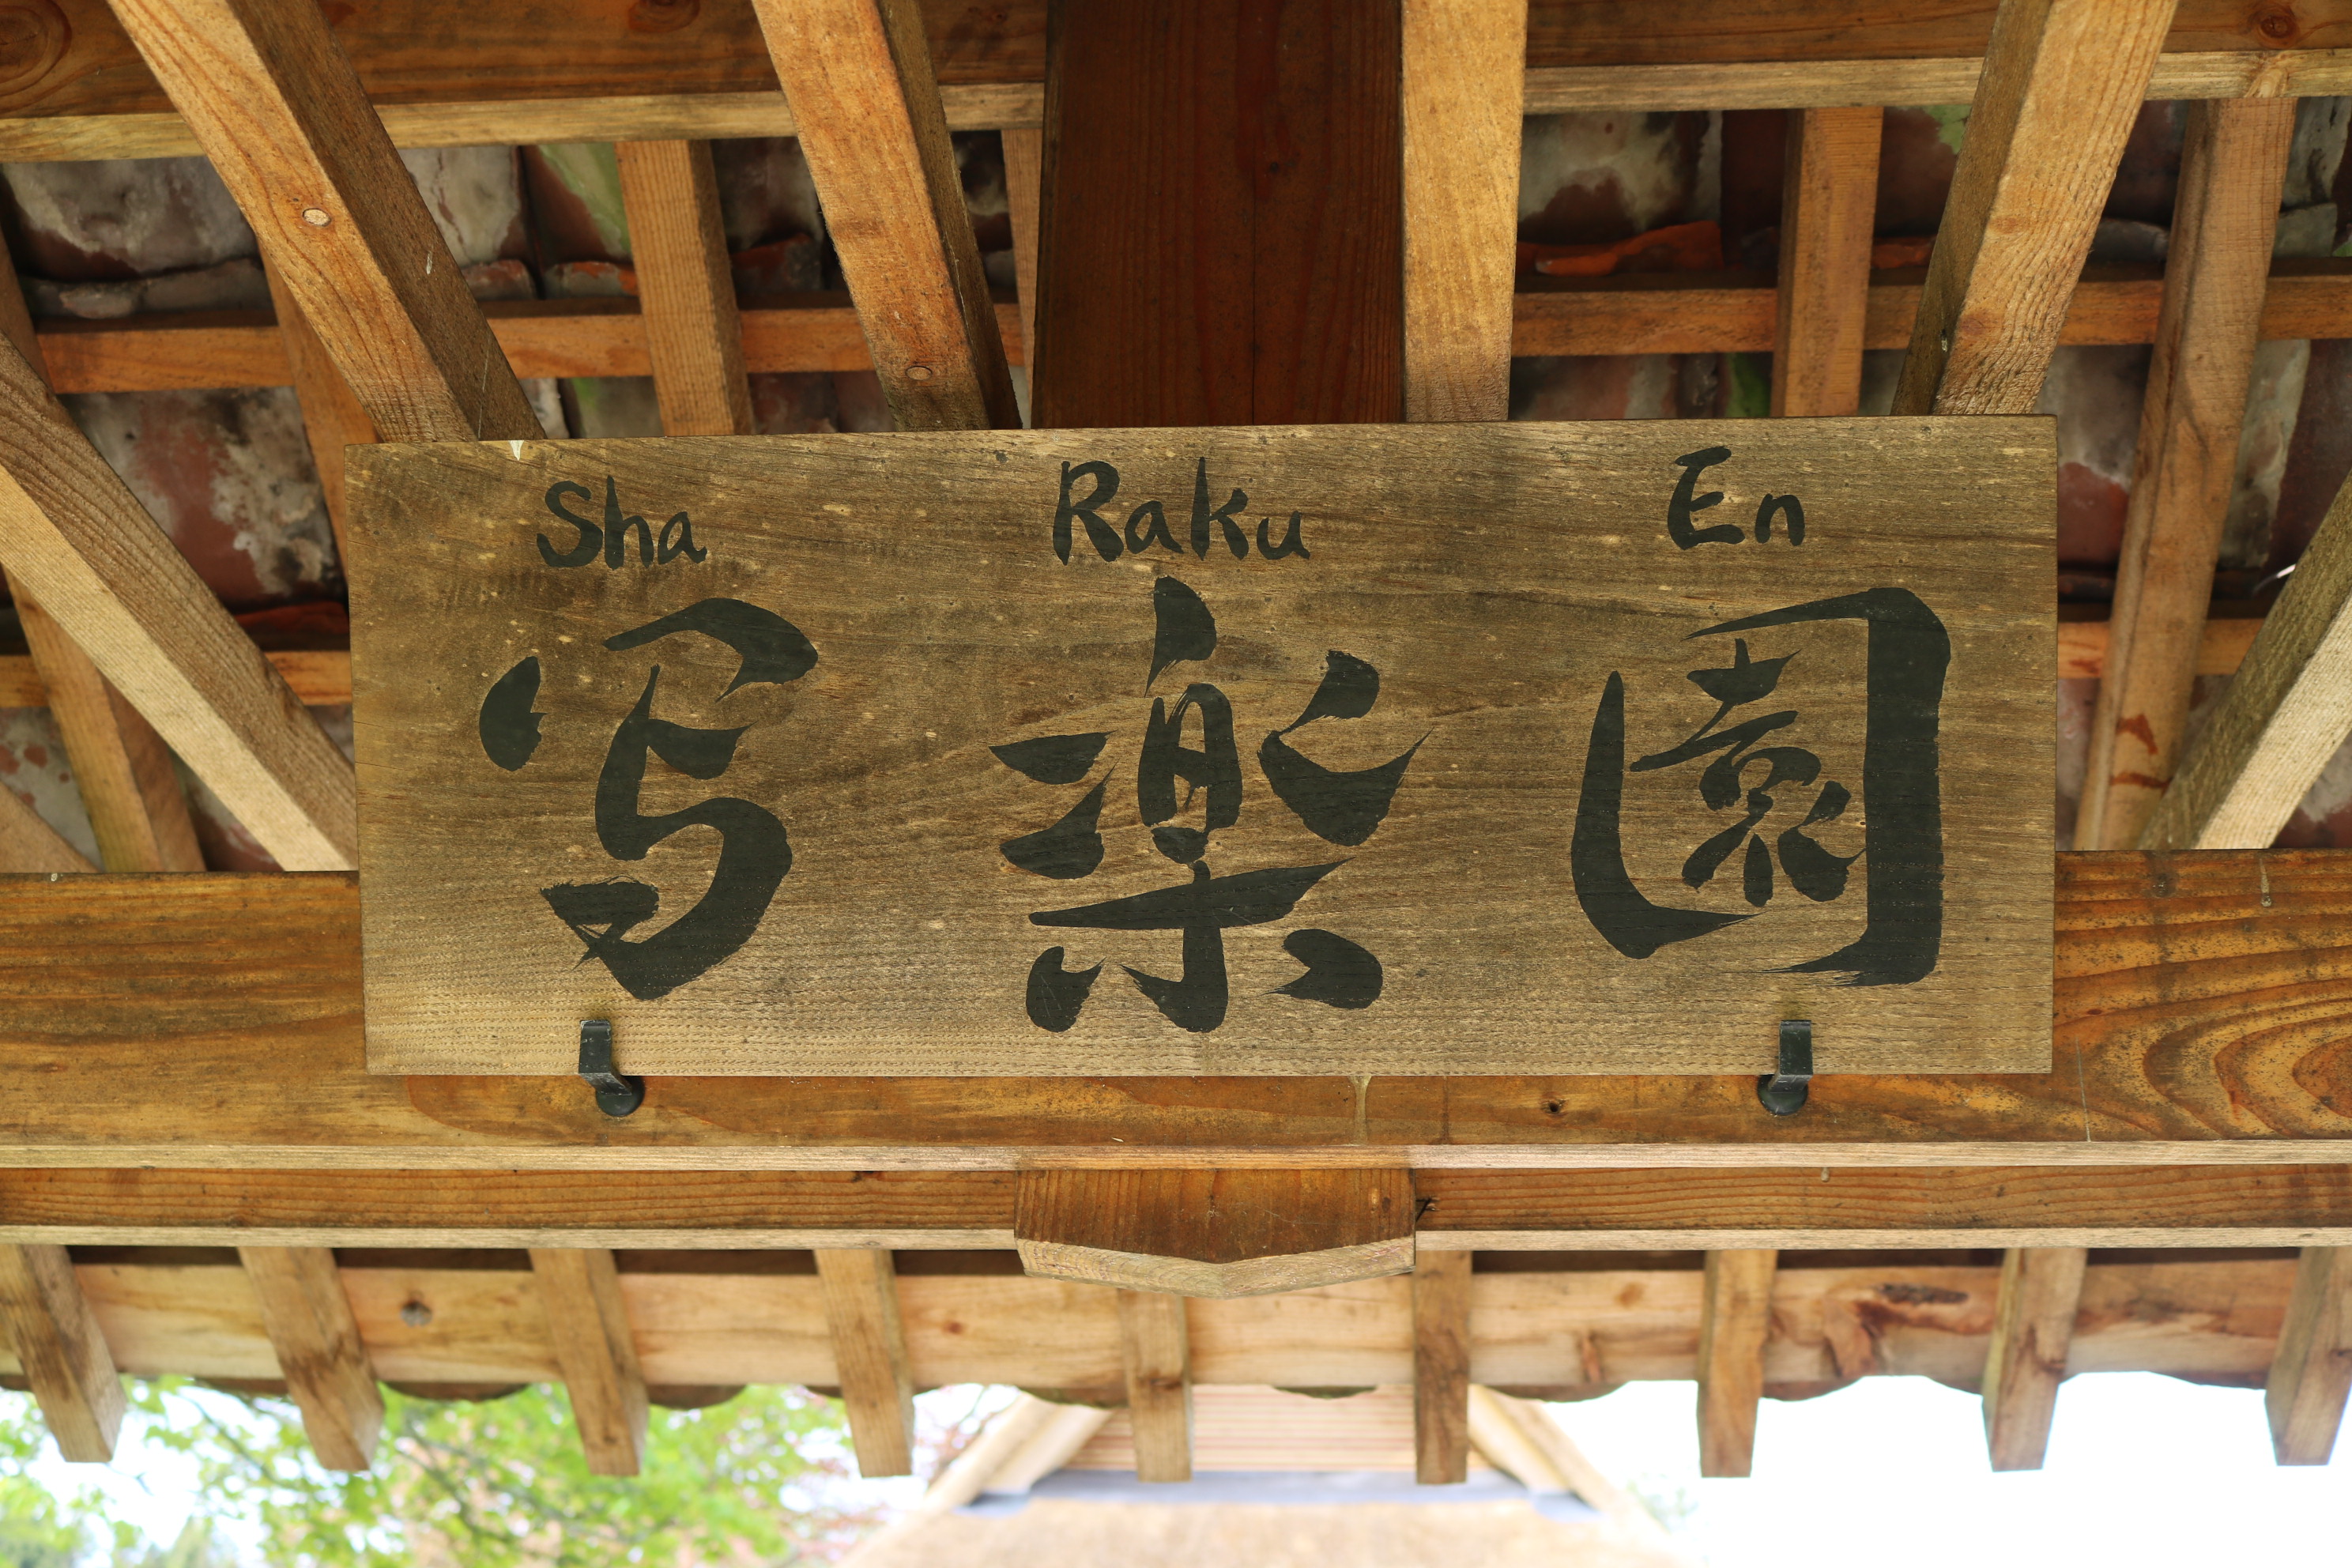 Sha Raku En
写楽園